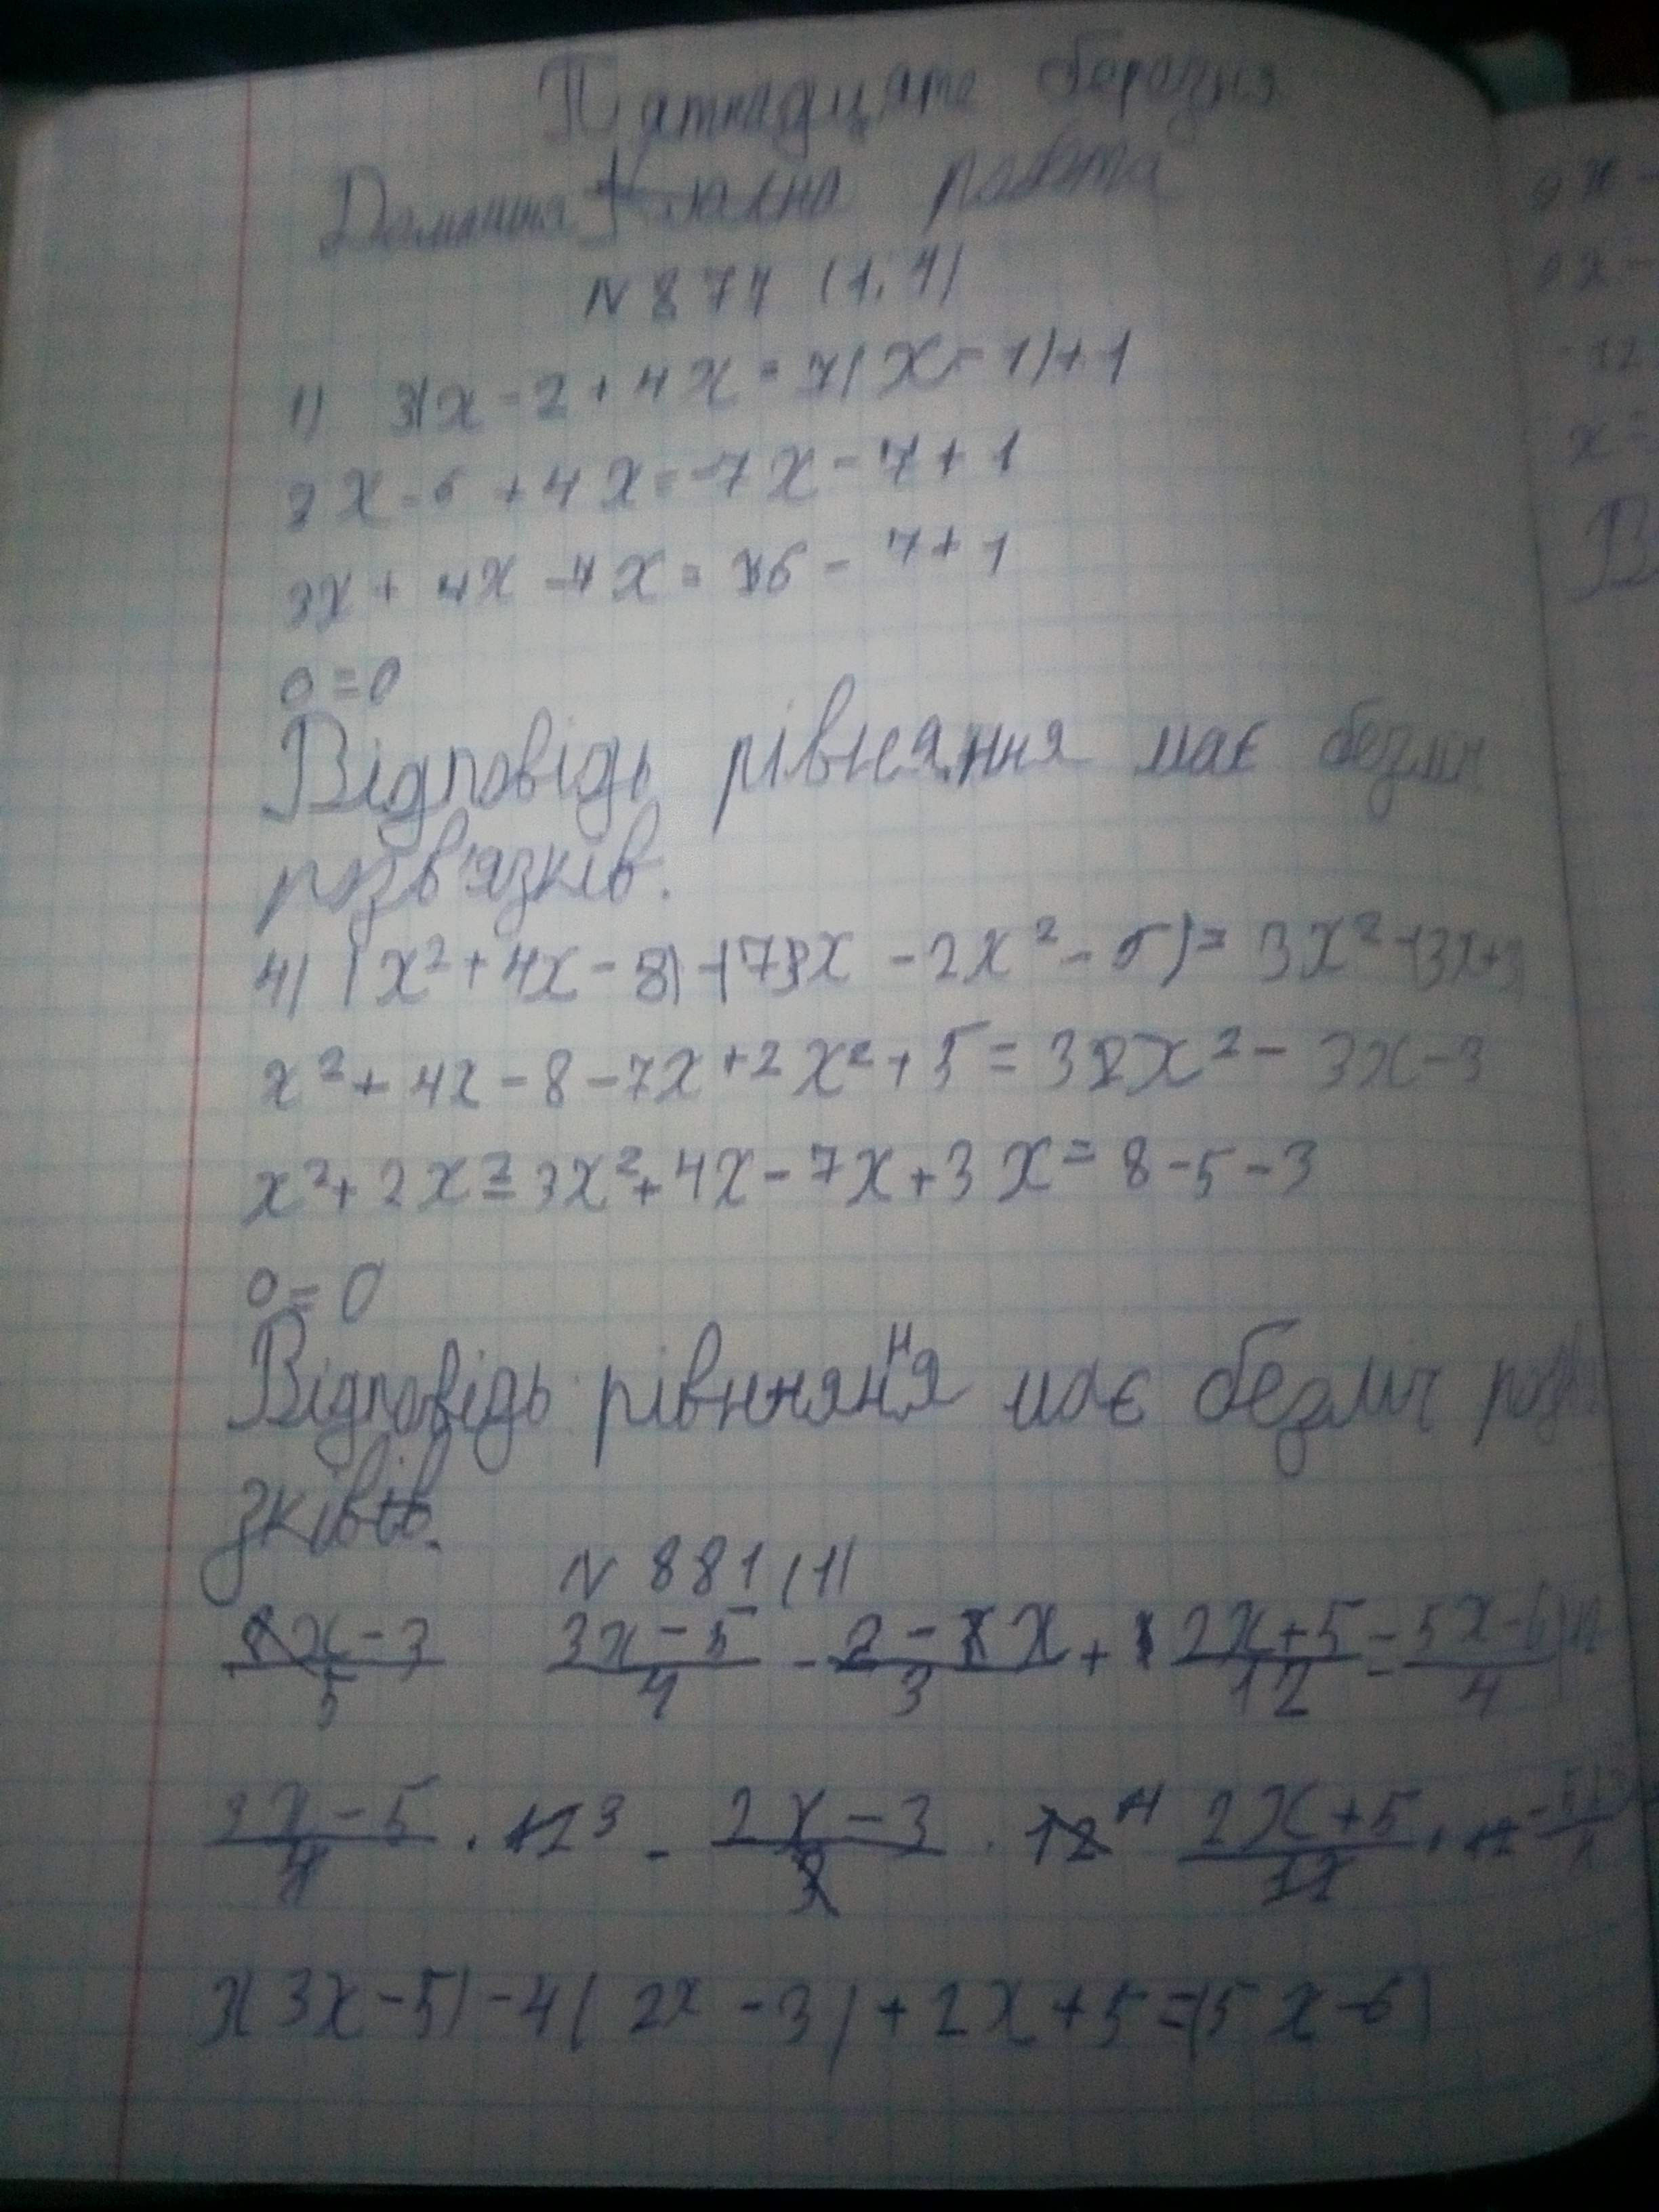 Пятнадцяте березня
Домашня Класна робота
N 874 (1,4)
1) 3(x - 2 + 4x = 7(x - 1) + 1
3x - 6 + 4x = 7x - 7 + 1
3x + 4x - 7x = 6 - 7 + 1
0 = 0
Відповідь рівняння має безліч
розв'язків.
4) (x² + 4x - 8) - (7x - 2x² - 5) = 3x² - (3x + 3
x² + 4x - 8 - 7x + 2x² + 5 = 3x² - 3x - 3
x² + 2x² = 3x² + 4x - 7x + 3x = 8 - 5 - 3
0 = 0
Відповідь рівнняння має безліч
зків
N 881 (1)
x - 3 / 5 3x - 5 / 4 - 2 - x / 3 + 2x + 5 / 12 = 5x - 6 / 4
3x - 5 / 4 · 12 3 - 2x - 3 / 3 · 12 4 2x + 5 / 12 · 12
3(3x - 5) - 4(2x - 3) + 2x + 5 = (5x - 6)